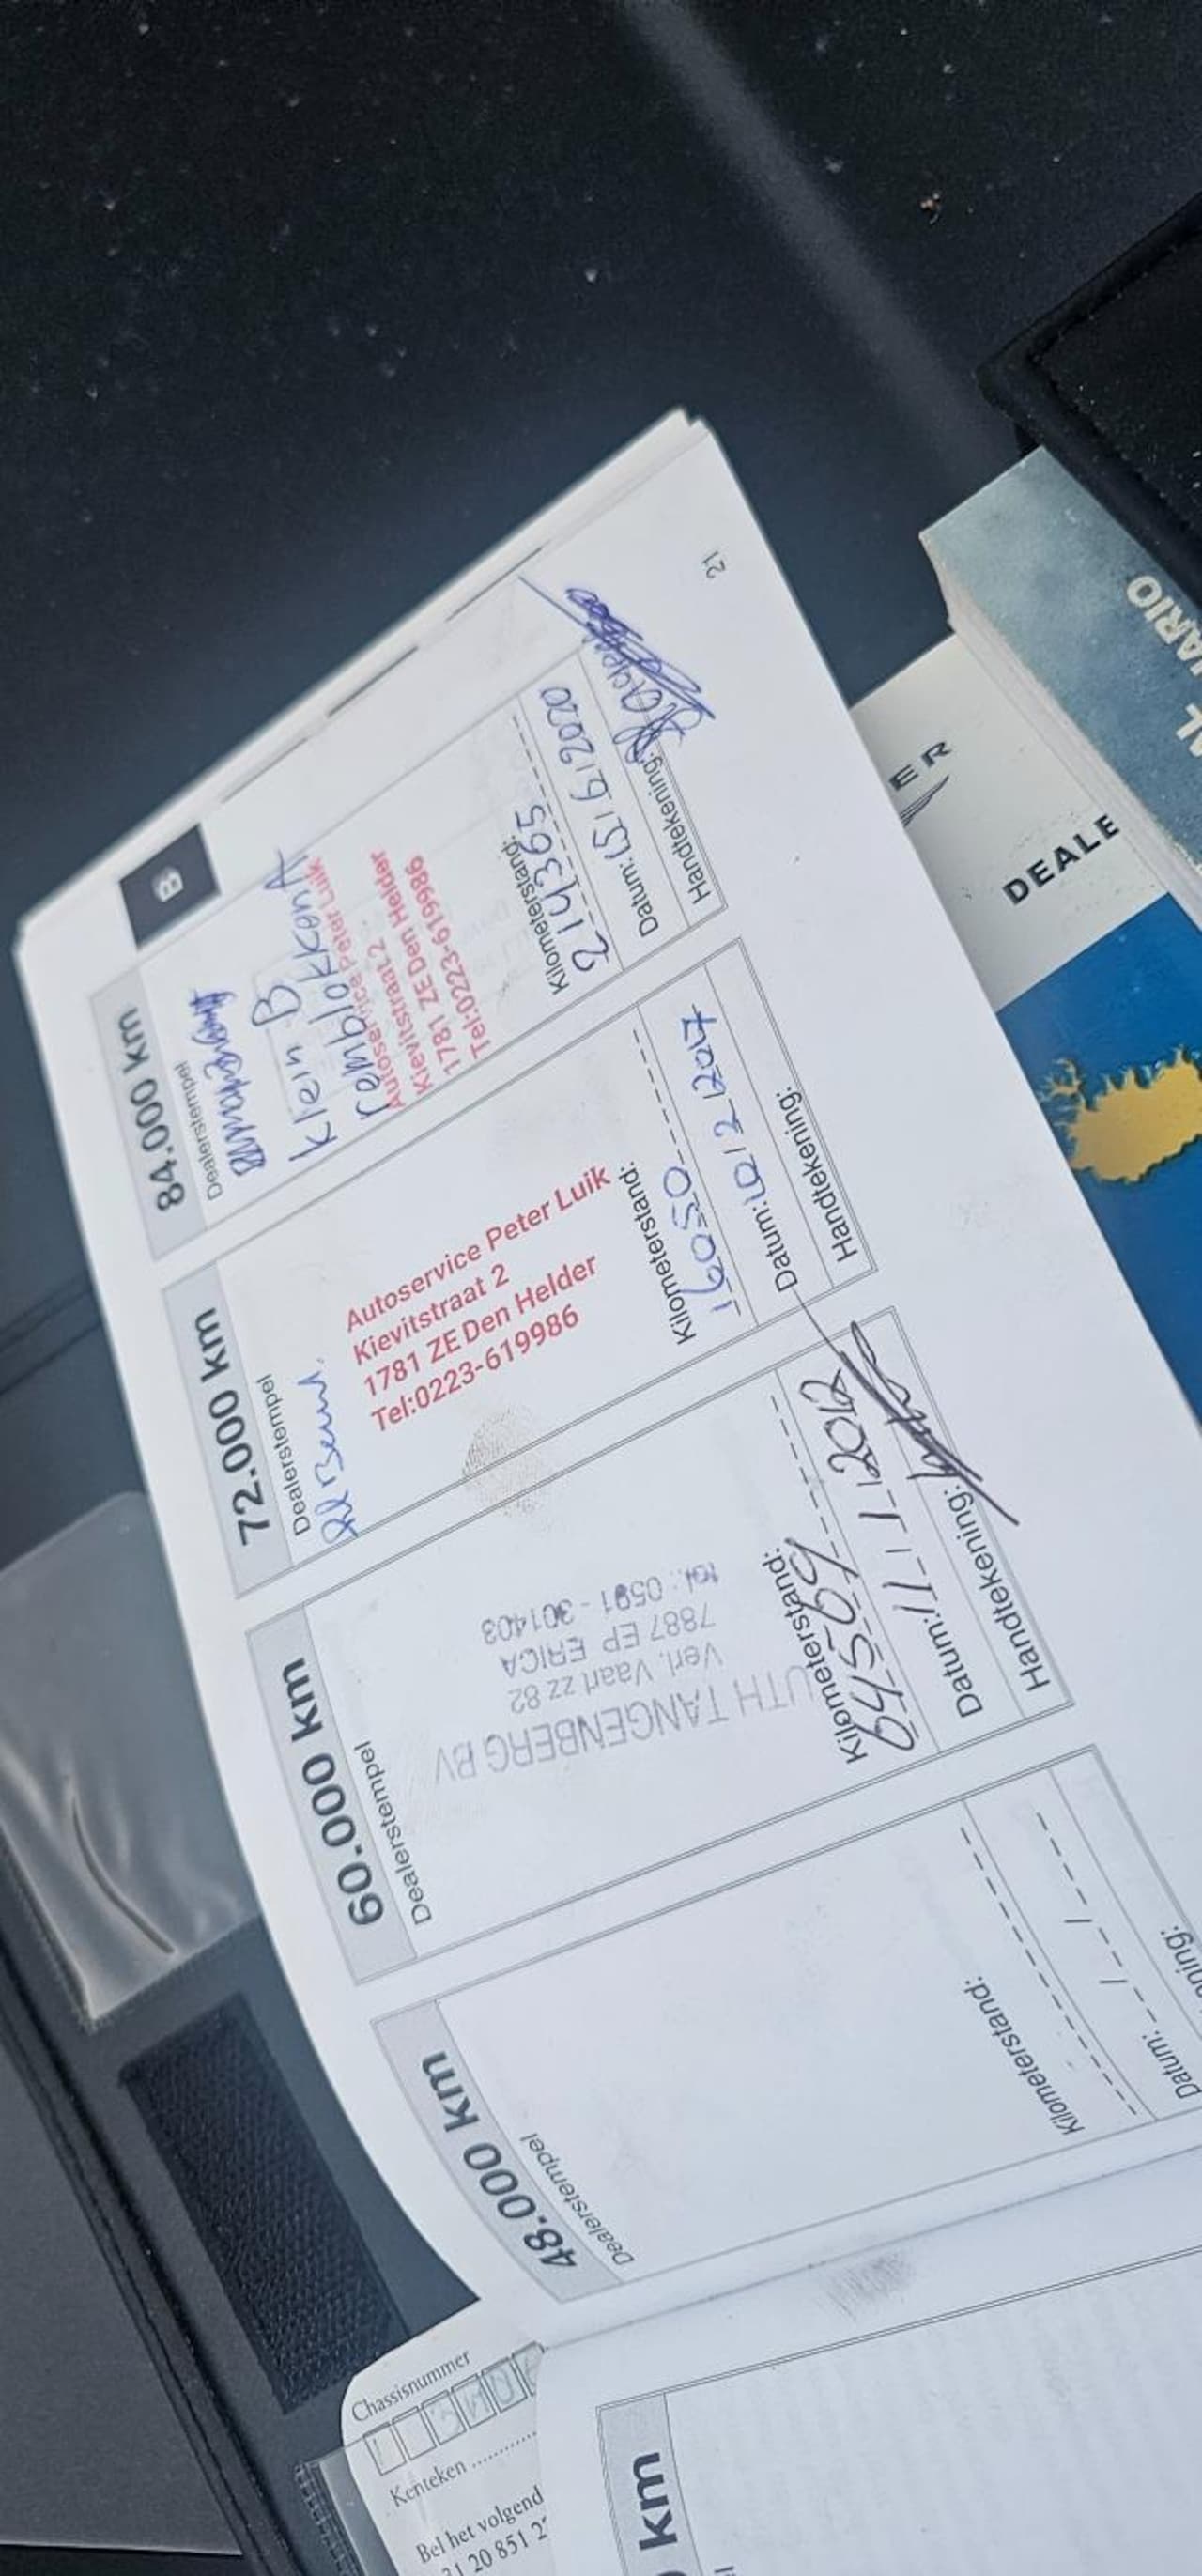 48.000 km
Dealerstempel
Kilometerstand:
Datum: / /
60.000 km
Dealerstempel
UTH TANGENBERG BV
Verl. Vaart zz 82
7887 EP ERICA
tel.: 0591 - 301403
Kilometerstand:
Datum: 11 / 1 / 2012
Handtekening:
72.000 km
Dealerstempel
Autoservice Peter Luik
Kievitstraat 2
1781 ZE Den Helder
Tel:0223-619986
Kilometerstand:
160550
Datum: 10 / 2 / 2017
Handtekening:
84.000 km
Dealerstempel
Klein B
remblokken A
Autoservice Peter Luik
Kievitstraat 2
1781 ZE Den Helder
Tel:0223-619986
Kilometerstand:
214365
Datum: 15 / 6 / 2020
Handtekening:
B
21
Chassisnummer
Kenteken
Bel het volgend
20 851 2
km
DEALE
ER